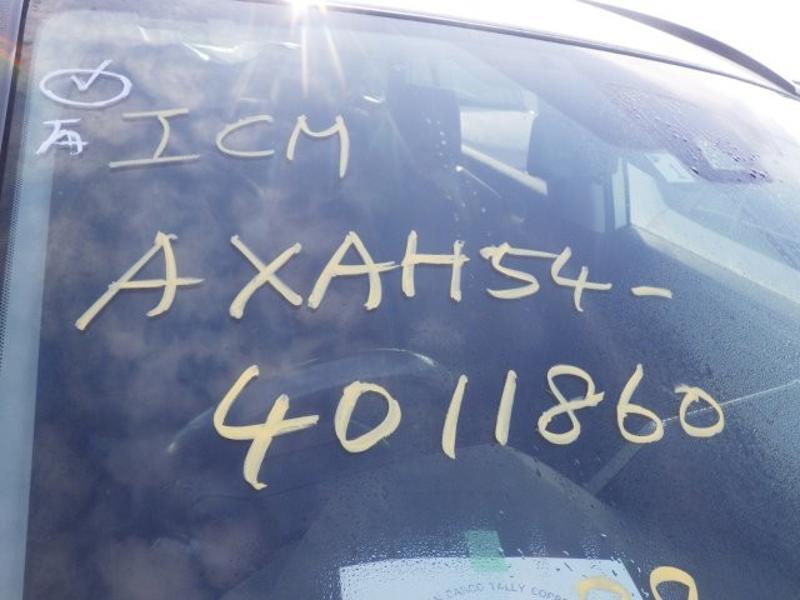 ICM
AXAH54-
4011860
CARGO TALLY CORPO